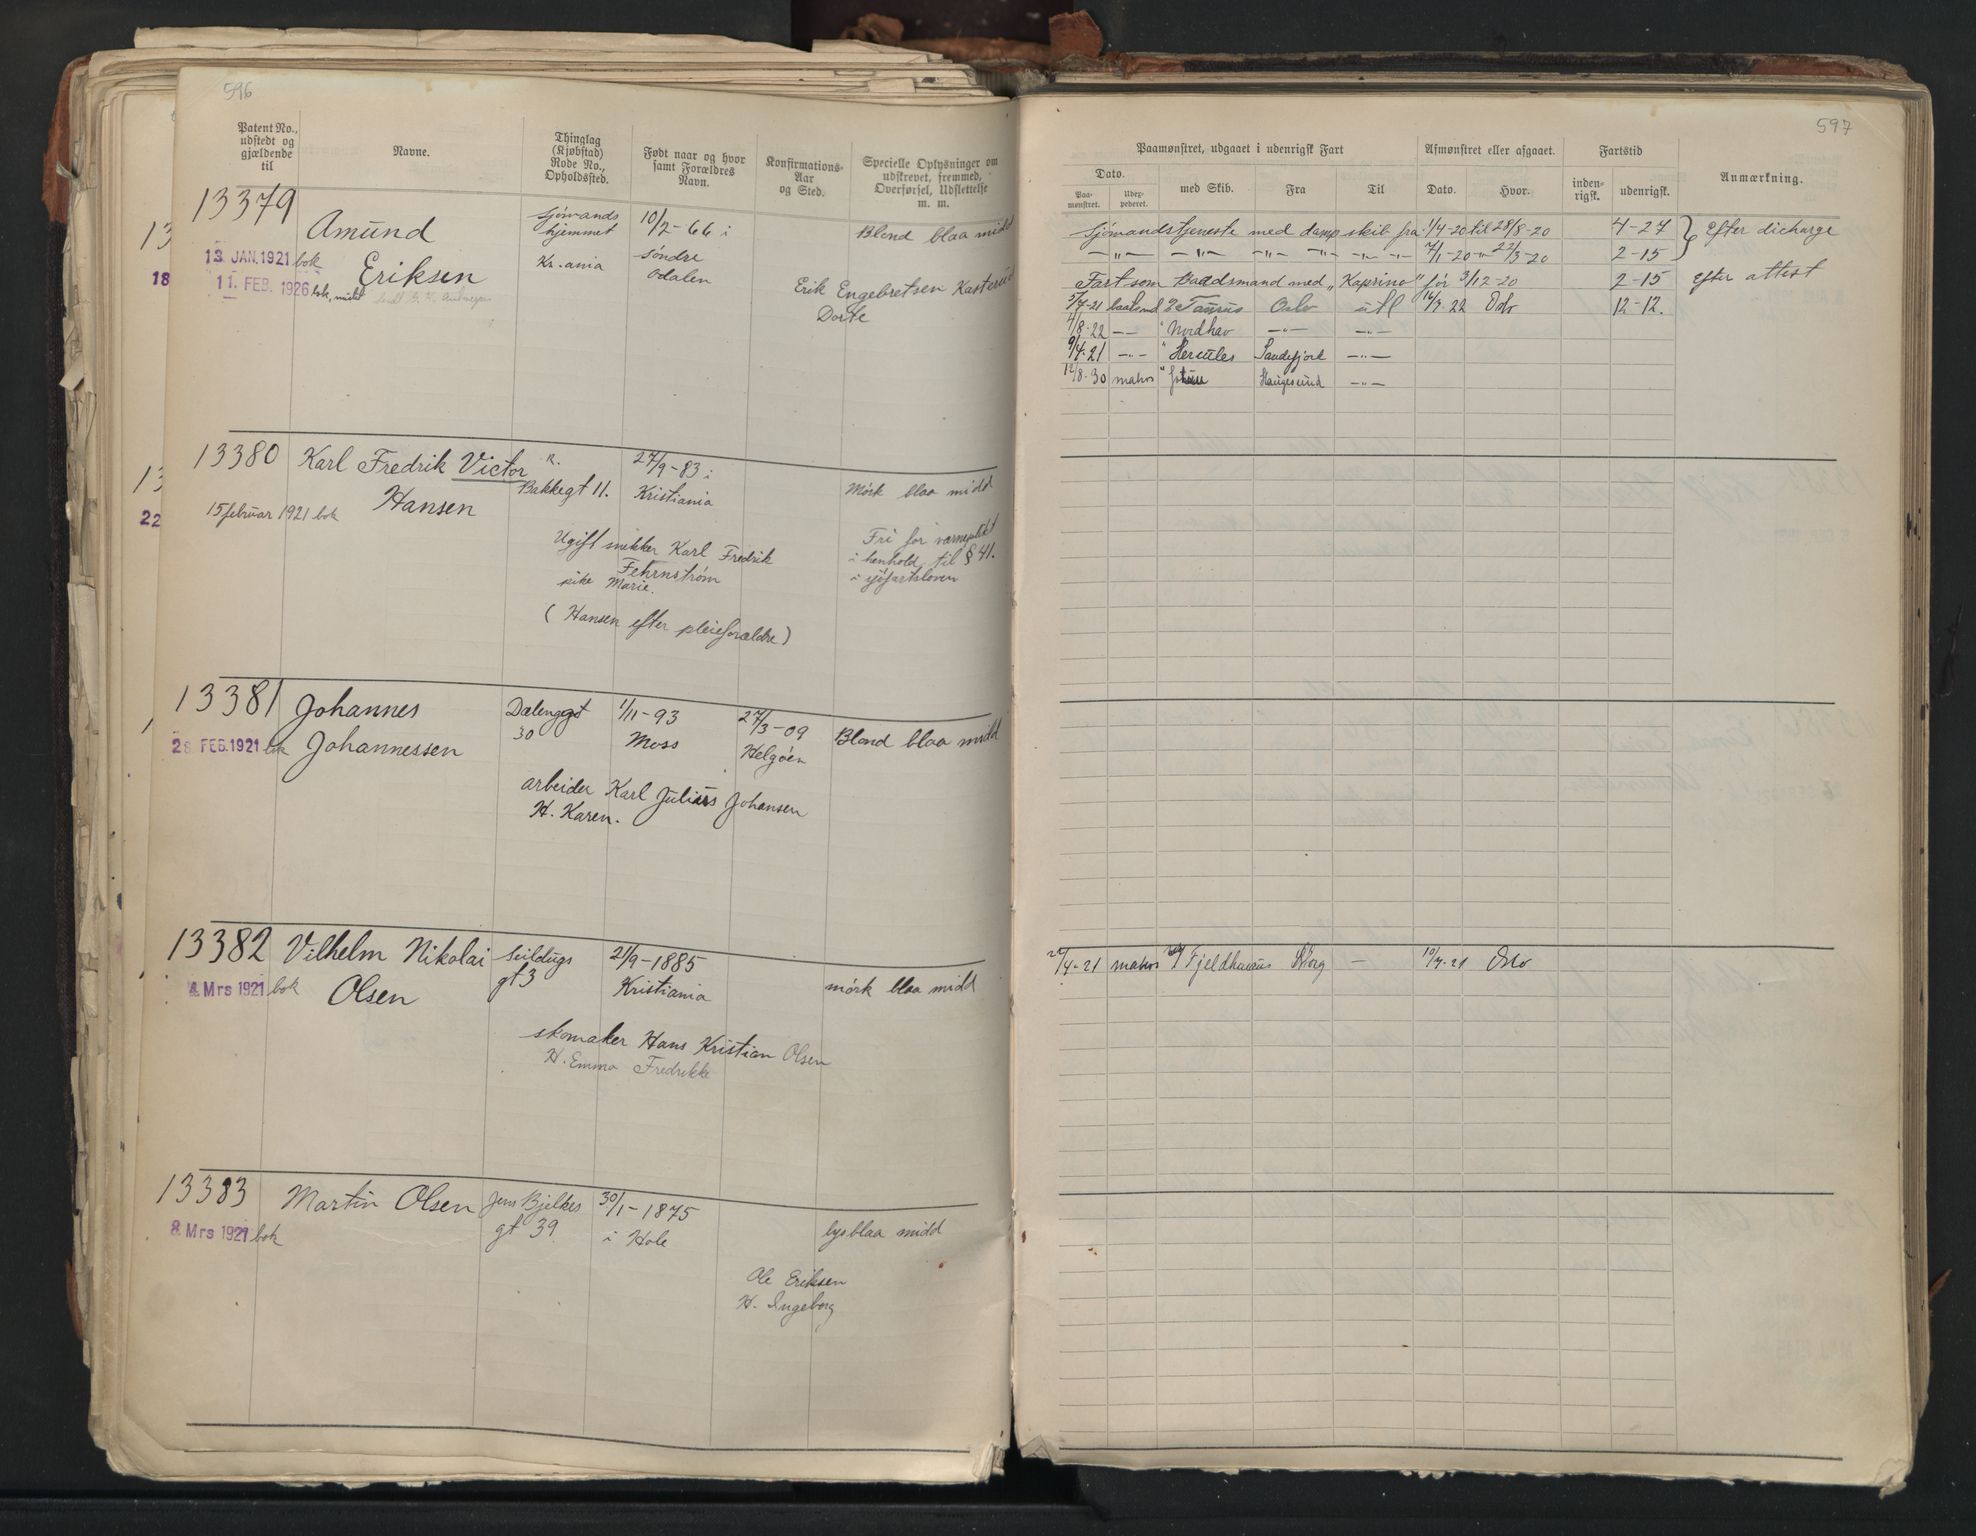 596
Patent No., udstedt og gjældende til
Navne.
Thinglag (Kjøbstad) Rode No., Opholdssted.
Født naar og hvor samt Forældres Navn.
Konfirmations-Aar og Sted.
Specielle Oplysninger om udskrevet, fremmed, Overførsel, Udslettelse m. m.
13379
Amund
Eriksen
13. JAN. 1921 bok
11. FEB. 1926 bok, mistet
Sjömands
hjemmet
Kr.ania
10/2-66 i
Söndre
Odalen
Blond blaa midd
Erik Engebretsen
Dorte
13380
Karl Fredrik Victor
Hansen
15 februar 1921 bok
Bakkegt 11.
27/9-83 i
Kristiania
Mörk blaa midd
Ugift snekker Karl Fredrik
Fehrnström
pike Marie.
(Hansen efter pleieforældre)
Fri for værneplikt
i henhold til § 41.
i sjöfartsloven
13381
Johannes
Johannessen
28 FEB. 1921 bok
Dælenggt
30
1/11-93
Moss
27/3-09
Helgöen
Blond blaa midd
arbeider Karl Julius Johansen
H. Karen.
13382
Vilhelm Nikolai
Olsen
4 Mrs 1921 bok
Seildugs
gt 3
21/9-1885
Kristiania
mörk blaa midd
skomaker Hans Kristian Olsen
H. Emma Fredrikke
13383
Martin Olsen
8 Mrs 1921 bok
Jens Bjelkes
gt 39
30/1-1875
i Hole
lys blaa midd
Ole Eriksen
H. Ingeborg
597
Paamønstret, udgaaet i udenrigsk Fart
Afmønstret eller afgaaet.
Fartstid
Anmærkning.
Dato.
Paa-mønstret.
med Skib.
Fra
Til
Dato.
Hvor.
inden-rigsk.
udenrigsk.
Sjömandstjeneste med dampskib fra 1/4-20 til 28/8-20 4-27 Efter dicharge
7/1-20 -"- 22/3-20 2-15
Fart som Baadsmand med "Kaprino" för 3/12-20 2-15 Efter attest
5/7-21 Taurus Oslo utl 16/7 22 Oslo 12-12.
4/8-22 -"- " Nordhav -"- -"-
9/4-21 -"- " Hercules Sandefjord -"-
12/8-30 matros Haugesund -"-
20/4-21 matros 10/7-21 Oslo